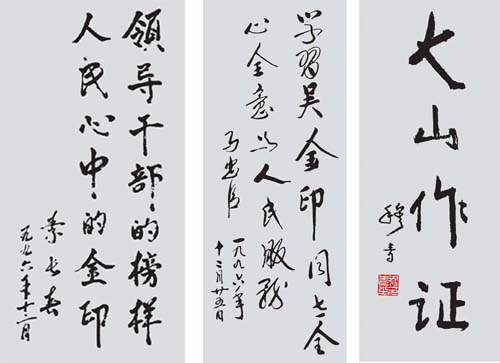 領导干部的榜样
人民心中的金印
李长春
一九九六年十二月
学习吴金印同志全
心全意为人民服务
马忠臣
一九九六年
十二月廿五日
大山作证
穆青